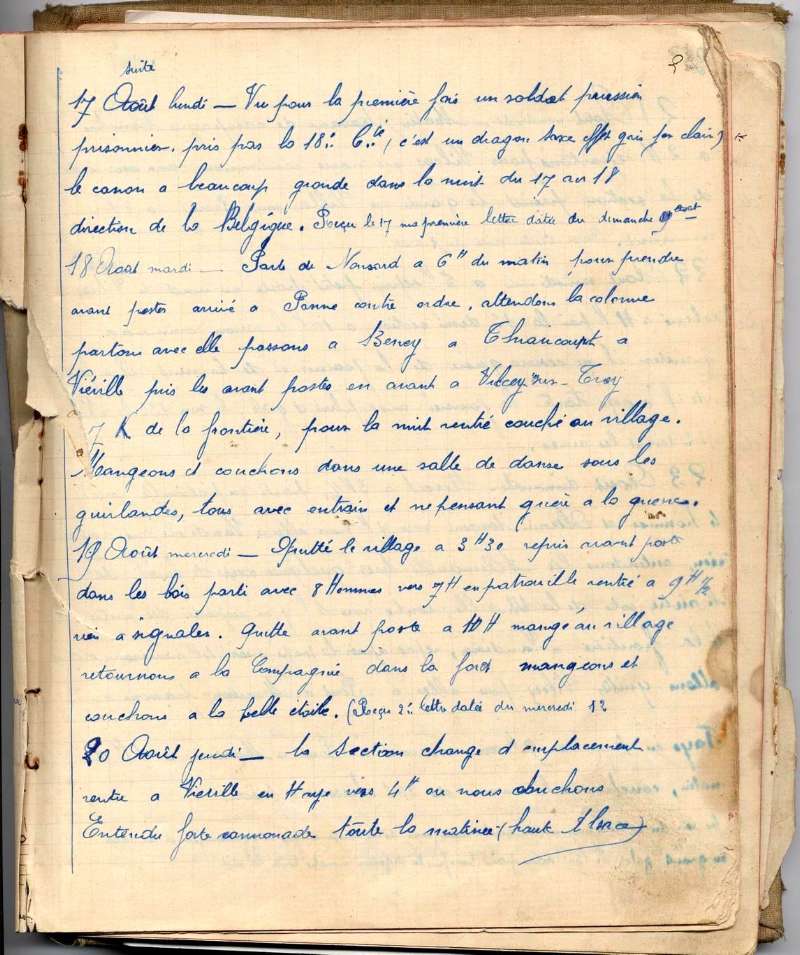 suite
17 Août lundi — Vu pour la première fois un soldat prussien
prisonnier. pris pas la 18e Cie, c'est un dragon saxe effet gris fer clair)
le canon a beaucoup grondé dans la nuit du 17 au 18
direction de la Belgique. Reçu le 17 ma première lettre datée du dimanche 9 août
18 Août mardi — Parte de Nonsard a 6H du matin pour prendre
avant postes arrivé a Panne contre ordre, attendons la colonne
partons avec elle passons a Beney a Thiaucourt a
Viéville pris les avant postes en avant a Vilcey-sur-Trey
7 K de la frontière, pour la nuit rentré couché au village.
Mangeons et couchons dans une salle de danse sous les
guirlandes, tous avec entrain et ne pensant guère a la guerre.
19 Août mercredi — Quitté le village a 3H30 repris avant poste
dans les bois parti avec 8 Hommes vers 7H en patrouille rentré a 9H 1/2
rien a signaler. Quitte avant poste a 10H mangé au village
retournons a la Compagnie dans la foret mangeons et
couchons a la belle étoile. (Reçu 2e lettre datée du mercredi 12
20 Août jeudi — la section change d emplacement
rentre a Viéville en Haye vers 4H ou nous couchons
Entendu forte cannonade toute la matinée (haute Alsace)